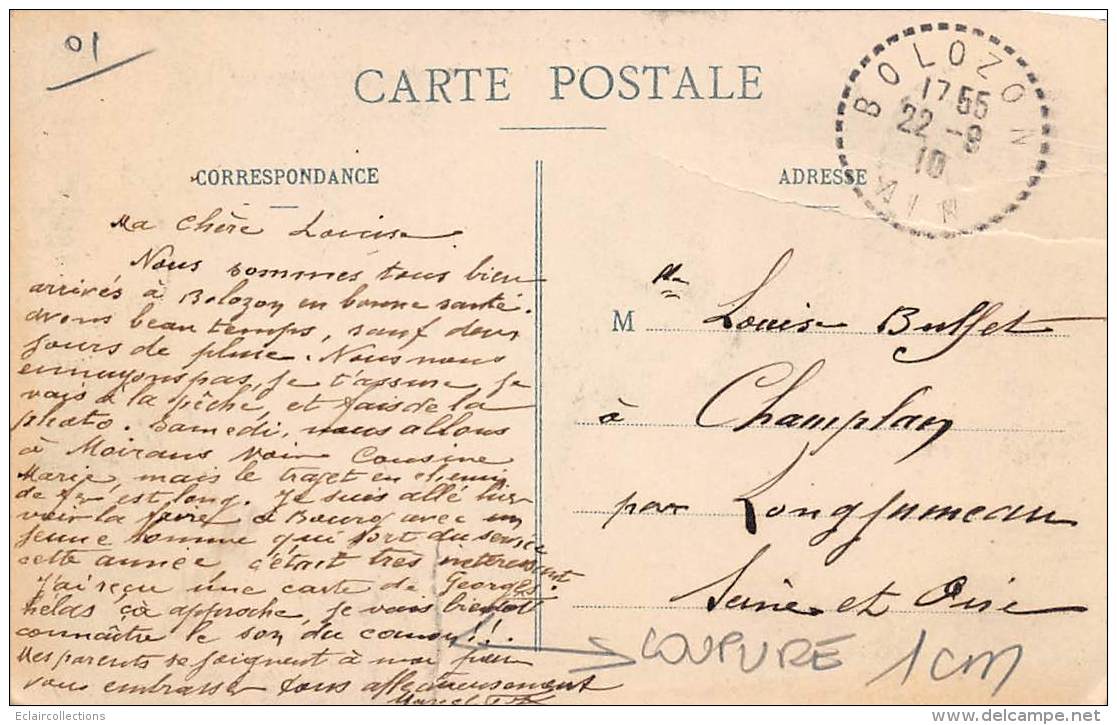 01
CARTE POSTALE
BOLOZON
17 55
22 -9
10
AIN
CORRESPONDANCE
ADRESSE
Ma chère Louise
Nous sommes tous bien
arrivés à Bolozon en bonne santé.
avons beau temps, sauf deux
jours de pluie. Nous nous
ennuyons pas, je t'assure, je
vais à la pêche, et fais de la
photo. Samedi, nous allons
à Moirans voir Cousine
Marie, mais le trajet en chemin
de fer est long. Je suis allé hier
voir la foire à Bourg avec un
jeune homme qui sort du service
cette année c'était très intéressant.
J'ai reçu une carte de Georges
helas ça approche, je vais bientôt
connaître le son du canon!!.
Mes parents se joignent à moi pour
vous embrasser tous affectueusement
Marcel
M lle Louise Buffet
à Champlan
par Longjumeau
Seine et Oise
COUPURE 1 cm
Eclaircollections
www.delcampe.net